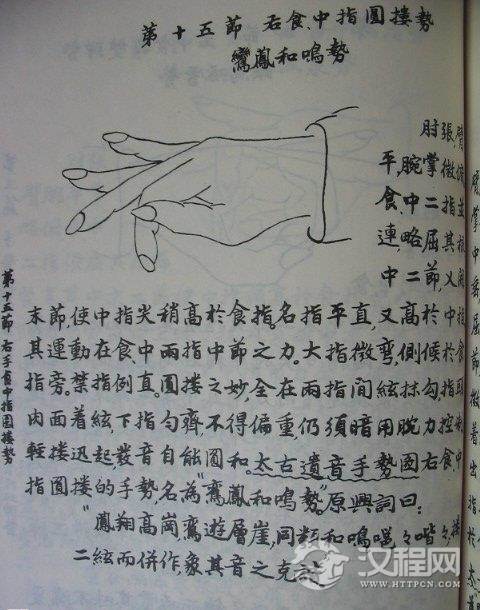 第十五節 右食、中指圓摟勢
鸞鳳和鳴勢
肘張,臂
腕掌微俯,
平,中二指並
食、略屈其根
連,
中二節
末節,使中指尖稍高於食指。名指平直,又高於中指
其運動在食、中兩指中節之力。大指微彎,側候於食
指旁。禁指例直。圓摟之妙,全在兩指間絃抹勾指頭
內面着絃下指勻齊,不得偏重仍須暗用腕力控
輕摟迅起發音自能圓和。太古遺音手勢圖右食中
指圓摟的手勢,名為"鸞鳳和鳴勢"。原興詞曰:
"鳳翔高崗鸞遊層崖,同類和鳴喈々喈々,摟
二絃而併作,象其音之克諧
第十五節 右手食中指圓摟勢
汉程网
WWW.HTTPCN.COM